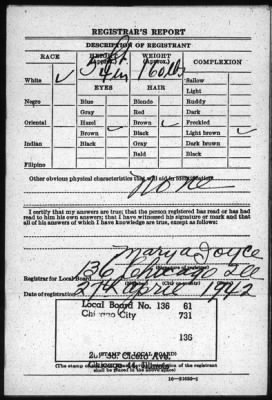 REGISTRAR'S REPORT
DESCRIPTION OF REGISTRANT
RACE HEIGHT (Approx.) WEIGHT (Approx.) COMPLEXION
5 ft 4 in 160 lbs
White ✓ Sallow
EYES HAIR Light
Negro Blue Blonde Ruddy
Gray Red Dark
Oriental Hazel Brown ✓ Freckled
Brown ✓ Black Light brown ✓
Indian Black Gray Dark brown
Bald Black
Filipino
Other obvious physical characteristics that will aid in identification
None
I certify that my answers are true; that the person registered has read or has had
read to him his own answers; that I have witnessed his signature or mark and that
all of his answers of which I have knowledge are true, except as follows:
Mary a Joyce
(Signature of registrar)
Registrar for Local Board 136 Chicago Ill
(City or county)
Date of registration 27th April 1942
Local Board No. 136 61
Chicago City 731
136
Cicero Ave.
(STAMP OF LOCAL BOARD)
Chicago 44, Illinois
(The stamp of the Local Board of the registrant
shall be placed in the above space)